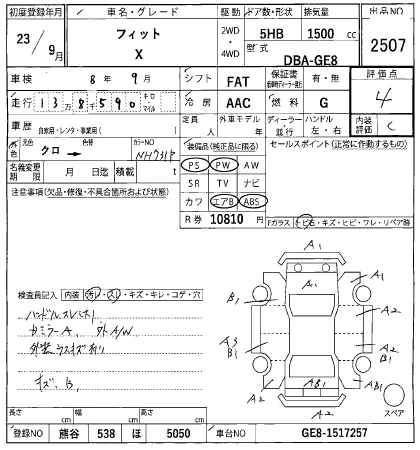 初度登録年月 車名・グレード 駆動 ドア数・形状 排気量 出品NO
23/9月 フィット X 2WD・4WD 5HB 1500cc 2507
型式 DBA-GE8
車検 8年9月 シフト FAT 保証書 有・無 評価点 4
走行 13万8590 キロ・マイル 冷房 AAC 燃料 G
車歴 自家用・レンタ・事業用( ) 定員 人 外車モデル 年 ディーラー・並行 ハンドル 左・右 内装評価 C
外色 元色 クロ→ 色替 カラーNO NH731P 装備品(純正品に限る) セールスポイント(正常に作動するもの)
名義変更期限 月 日迄 積載 t PS PW AW
注意事項(欠品・修復・不具合箇所および状態) SR TV ナビ
カワ エアB ABS
R券 10810円 Fガラス トビ石・キズ・ヒビ・ワレ・リペア跡
A1
検査員記入 内装 汚レ・スレ・キズ・キレ・コゲ・穴 A1 A1
B1 A2
ハンドルスレ
カミラーA 外A/W A3 B1 A2 B1
外装 ウスキズ有り
キズ、B、 A2 AB1 A2 AB1
A2 スペア
長さ cm 幅 cm 高さ cm
登録NO 熊谷 538 ほ 5050 車台NO GE8-1517257